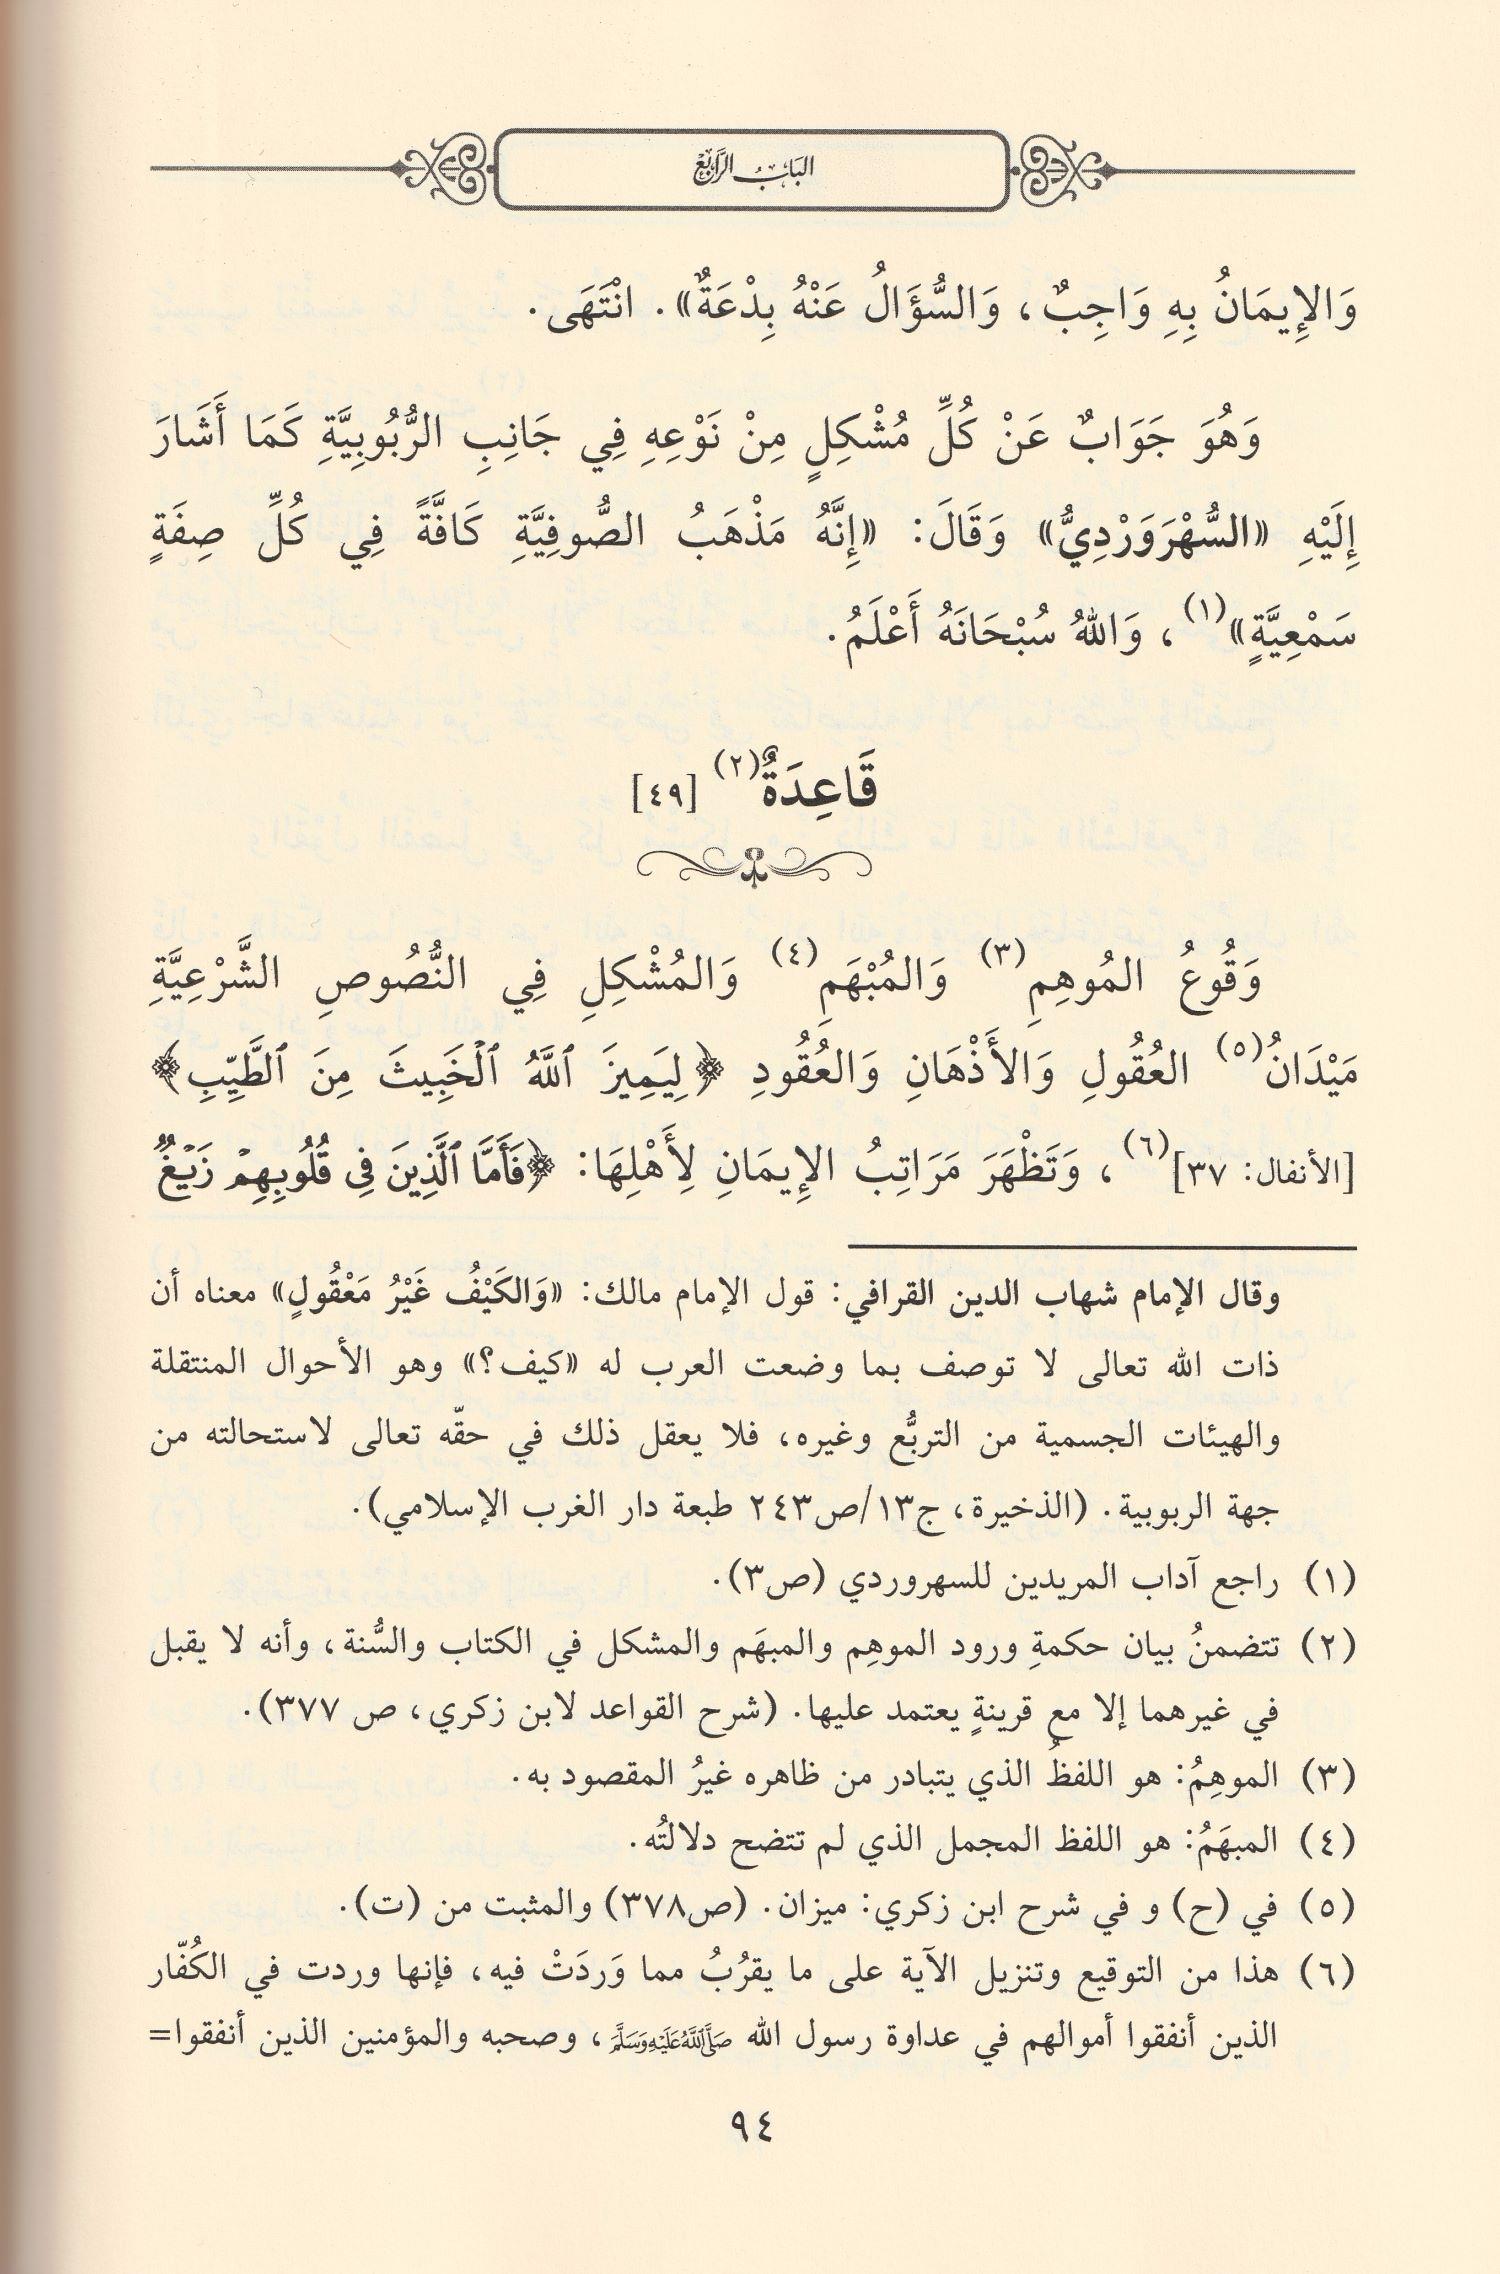 البَابُ الرَّابِعُ
وَالإِيمَانُ بِهِ وَاجِبٌ، وَالسُّؤَالُ عَنْهُ بِدْعَةٌ». انْتَهَى.
وَهُوَ جَوَابٌ عَنْ كُلِّ مُشْكِلٍ مِنْ نَوْعِهِ فِي جَانِبِ الرُّبُوبِيَّةِ كَمَا أَشَارَ
إِلَيْهِ «السُّهْرَوَرْدِيُّ» وَقَالَ: «إِنَّهُ مَذْهَبُ الصُّوفِيَّةِ كَافَّةً فِي كُلِّ صِفَةٍ
سَمْعِيَّةٍ»(١)، وَاللهُ سُبْحَانَهُ أَعْلَمُ.
قَاعِدَةٌ(٢) [٤٩]
وَقُوعُ المُوهِمِ(٣) وَالمُبْهَمِ(٤) وَالمُشْكِلِ فِي النُّصُوصِ الشَّرْعِيَّةِ
مَيْدَانُ(٥) العُقُولِ وَالأَذْهَانِ وَالعُقُودِ ﴿لِيَمِيزَ ٱللَّهُ ٱلْخَبِيثَ مِنَ ٱلطَّيِّبِ﴾
[الأنفال: ٣٧](٦)، وَتَظْهَرَ مَرَاتِبُ الإِيمَانِ لِأَهْلِهَا: ﴿فَأَمَّا ٱلَّذِينَ فِي قُلُوبِهِمْ زَيْغٌ
وقال الإمام شهاب الدين القرافي: قول الإمام مالك: «وَالكَيْفُ غَيْرُ مَعْقُولٍ» معناه أن
ذات الله تعالى لا توصف بما وضعت العرب له «كيف؟» وهو الأحوال المنتقلة
والهيئات الجسمية من التربُّع وغيره، فلا يعقل ذلك في حقّه تعالى لاستحالته من
جهة الربوبية. (الذخيرة، ج١٣/ص٢٤٣ طبعة دار الغرب الإسلامي).
(١) راجع آداب المريدين للسهروردي (ص٣).
(٢) تتضمنُ بيان حكمةِ ورود الموهِم والمبهَم والمشكل في الكتاب والسُّنة، وأنه لا يقبل
في غيرهما إلا مع قرينةٍ يعتمد عليها. (شرح القواعد لابن زكري، ص ٣٧٧).
(٣) الموهِمُ: هو اللفظُ الذي يتبادر من ظاهره غيرُ المقصود به.
(٤) المبهَمُ: هو اللفظ المجمل الذي لم تتضح دلالتُه.
(٥) في (ح) و في شرح ابن زكري: ميزان. (ص٣٧٨) والمثبت من (ت).
(٦) هذا من التوقيع وتنزيل الآية على ما يقرُبُ مما وَردَتْ فيه، فإنها وردت في الكُفّار
الذين أنفقوا أموالهم في عداوة رسول الله صَلَّىاللَّهُعَلَيْهِوَسَلَّمَ، وصحبه والمؤمنين الذين أنفقوا=
٩٤